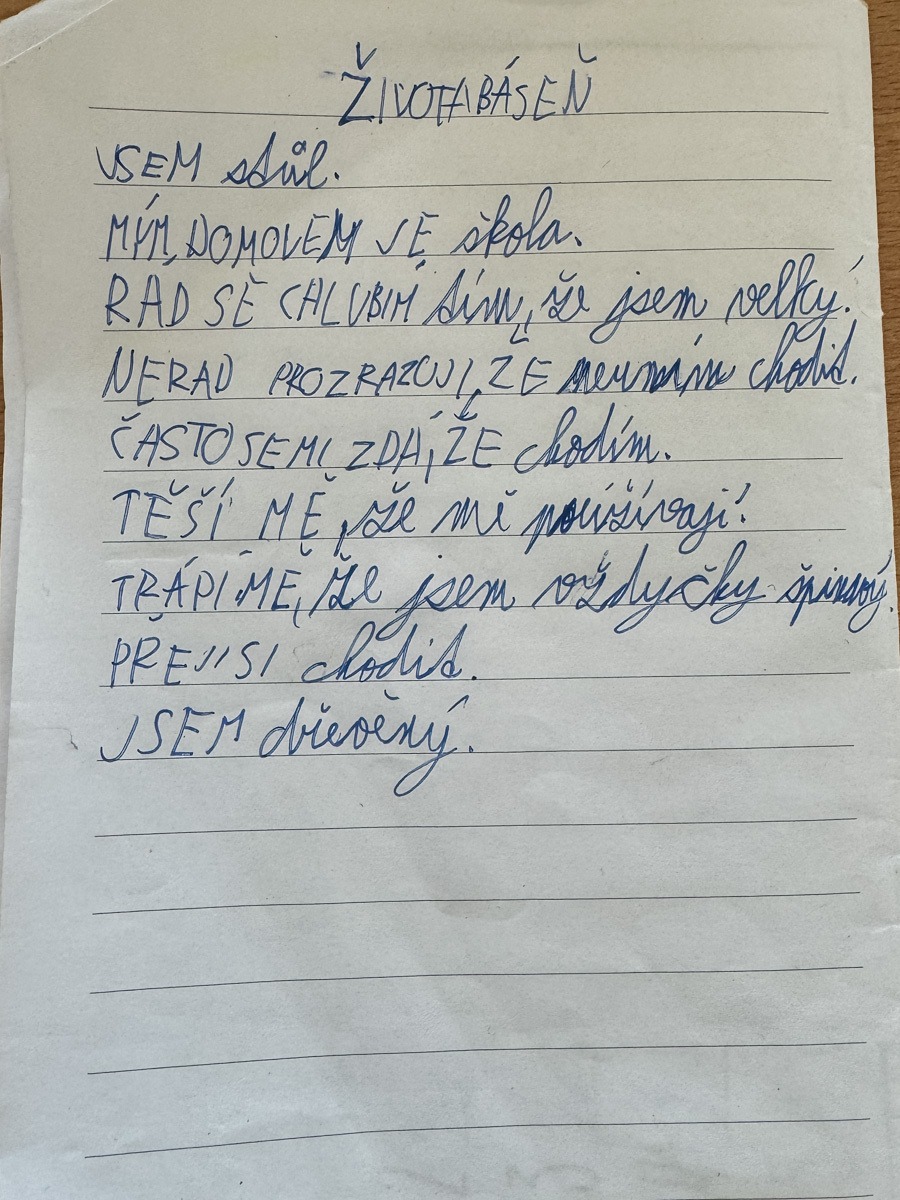 ŽIVOTABÁSEŇ
JSEM stůl.
MÝM DOMOVEM JE škola.
RÁD SE CHLUBÍM tím, že jsem velký.
NERAD PROZRAZUJI, ŽE neumím chodit.
ČASTO SE MI ZDÁ, ŽE chodím.
TĚŠÍ MĚ, že mě používají.
TRÁPÍ MĚ, že jsem vždycky špinavý.
PŘEJI SI chodit.
JSEM dřevěný.